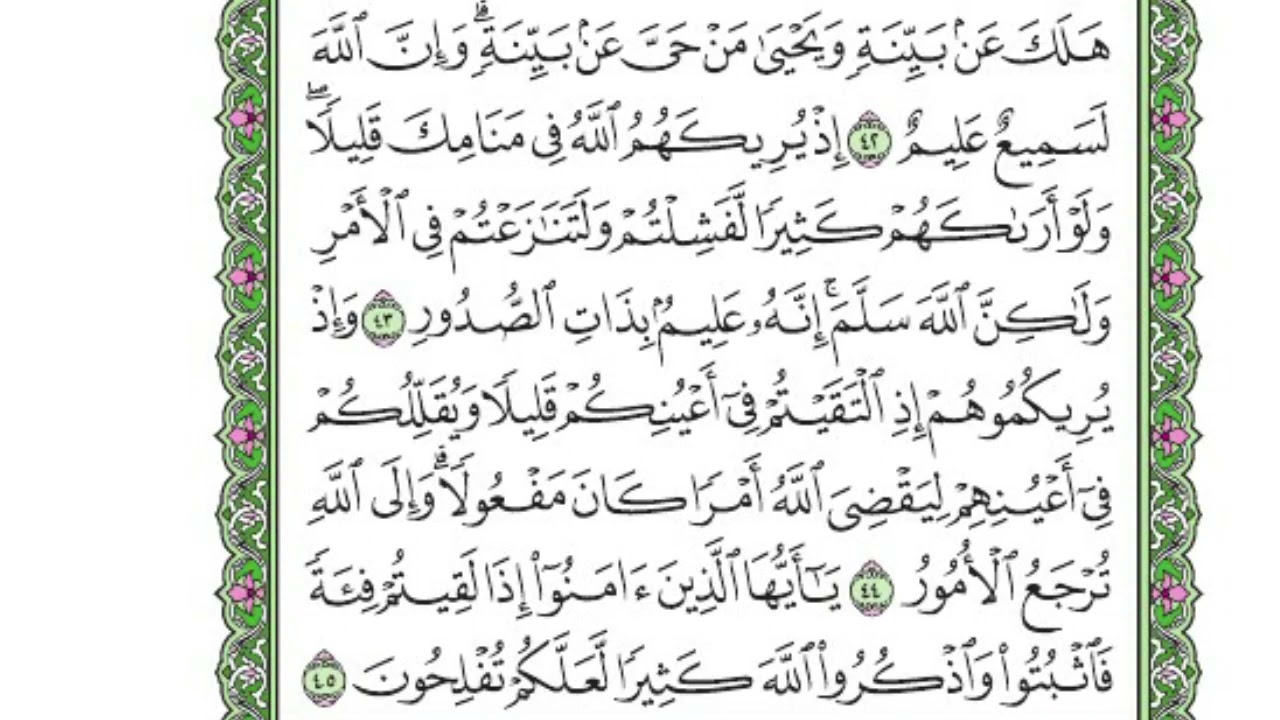 هَلَكَ عَنۢ بَيِّنَةٖ وَيَحۡيَىٰ مَنۡ حَيَّ عَنۢ بَيِّنَةٖۗ وَإِنَّ ٱللَّهَ
لَسَمِيعٌ عَلِيمٌ ٤٢ إِذۡ يُرِيكَهُمُ ٱللَّهُ فِي مَنَامِكَ قَلِيلٗاۖ
وَلَوۡ أَرَىٰكَهُمۡ كَثِيرٗا لَّفَشِلۡتُمۡ وَلَتَنَٰزَعۡتُمۡ فِي ٱلۡأَمۡرِ
وَلَٰكِنَّ ٱللَّهَ سَلَّمَۚ إِنَّهُۥ عَلِيمُۢ بِذَاتِ ٱلصُّدُورِ ٤٣ وَإِذۡ
يُرِيكُمُوهُمۡ إِذِ ٱلۡتَقَيۡتُمۡ فِيٓ أَعۡيُنِكُمۡ قَلِيلٗا وَيُقَلِّلُكُمۡ
فِيٓ أَعۡيُنِهِمۡ لِيَقۡضِيَ ٱللَّهُ أَمۡرٗا كَانَ مَفۡعُولٗاۗ وَإِلَى ٱللَّهِ
تُرۡجَعُ ٱلۡأُمُورُ ٤٤ يَٰٓأَيُّهَا ٱلَّذِينَ ءَامَنُوٓاْ إِذَا لَقِيتُمۡ فِئَةٗ
فَٱثۡبُتُواْ وَٱذۡكُرُواْ ٱللَّهَ كَثِيرٗا لَّعَلَّكُمۡ تُفۡلِحُونَ ٤٥